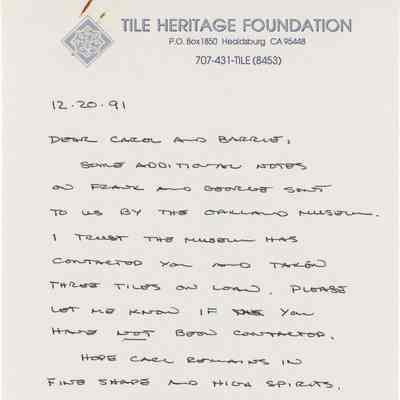 TILE HERITAGE FOUNDATION
P.O. Box 1850 Healdsburg CA 95448
707-431-TILE (8453)
12.20.91
DEAR CAROL AND BARRIE,
SOME ADDITIONAL NOTES
ON FRANK AND GEORGE SENT
TO US BY THE OAKLAND MUSEUM.
I TRUST THE MUSEUM HAS
CONTACTED YOU AND TAKEN
THREE TILES ON LOAN. PLEASE
LET ME KNOW IF YOU
HAVE NOT BEEN CONTACTED.
HOPE CARL REMAINS IN
FINE SHAPE AND HIGH SPIRITS.